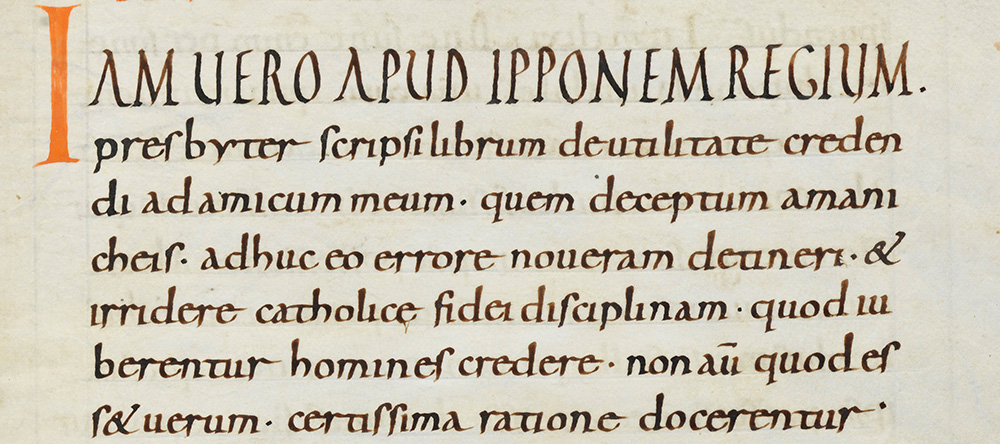 IAM UERO APUD IPPONEM REGIUM.
presbyter scripsi librum deutilitate creden
di adamicum meum· quem deceptum amani
cheis· adhuc eo errore noueram detineri· &
irridere catholicę fidei disciplinam· quod iu
berentur homines credere· non aū quod es
s& uerum· certissima ratione docerentur·